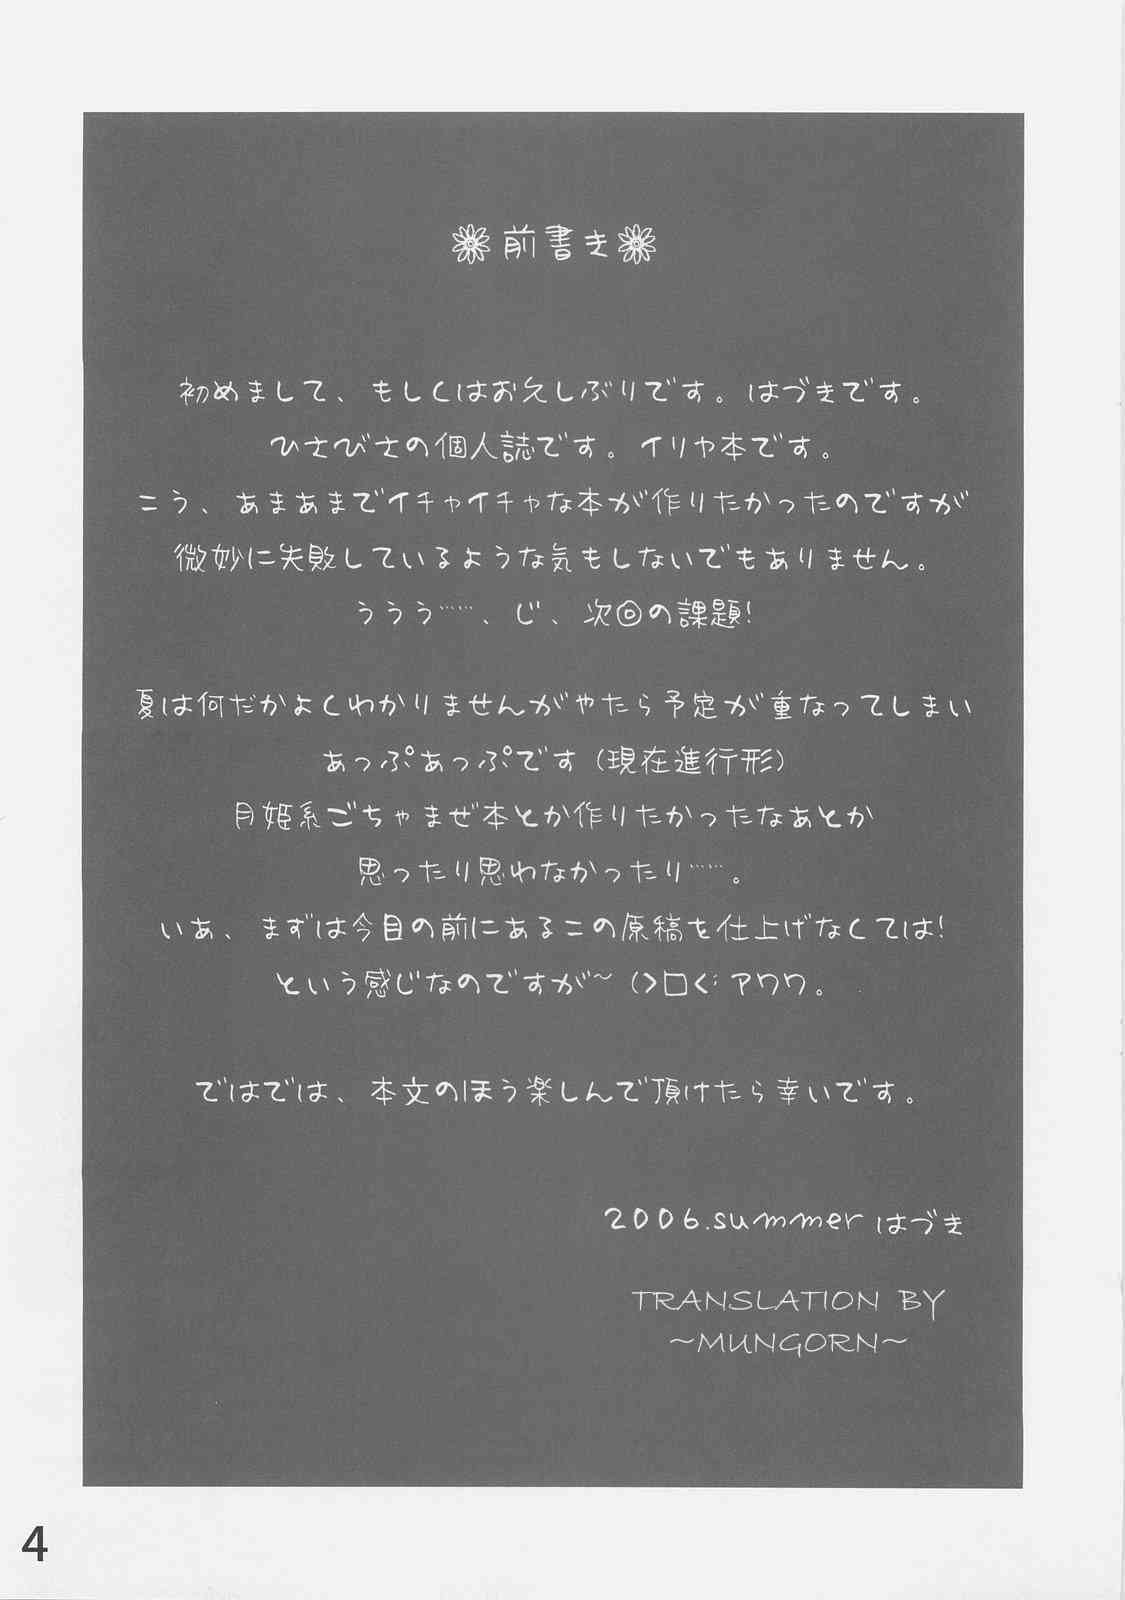 前書き
初めまして、もしくはお久しぶりです。はづきです。
ひさびさの個人誌です。イリヤ本です。
こう、あまあまでイチャイチャな本が作りたかったのですが
微妙に失敗しているような気もしないでもありません。
ううう……、じ、次回の課題!
夏は何だかよくわかりませんがやたら予定が重なってしまい
あっぷあっぷです（現在進行形）
月姫系ごちゃまぜ本とか作りたかったなあとか
思ったり思わなかったり……。
いあ、まずは今目の前にあるこの原稿を仕上げなくては!
という感じなのですが~（>口<;アワワ。
ではでは、本文のほう楽しんで頂けたら幸いです。
2006.summer はづき
TRANSLATION BY
~MUNGORN~
4